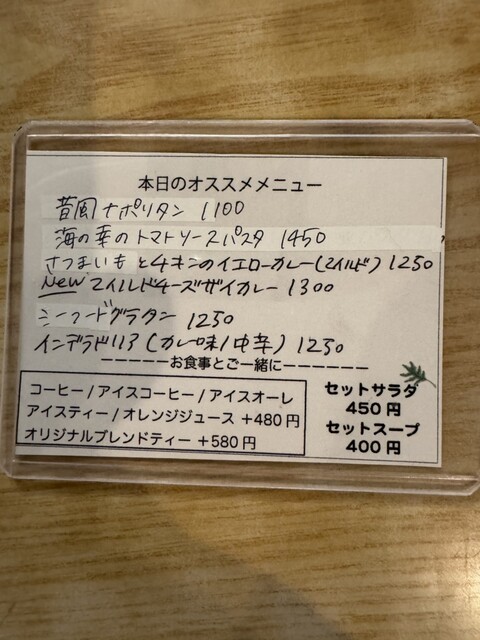 本日のオススメメニュー
昔風ナポリタン 1100
海の幸のトマトソースパスタ 1450
さつまいもとチキンのイエローカレー(マイルド) 1250
New マイルドチーズザイカレー 1300
シーフードグラタン 1250
インデラド113(カレー味/中辛) 1250
-----お食事とご一緒に-----
コーヒー/アイスコーヒー/アイスオーレ
アイスティー/オレンジジュース +480円
オリジナルブレンドティー +580円
セットサラダ
450円
セットスープ
400円